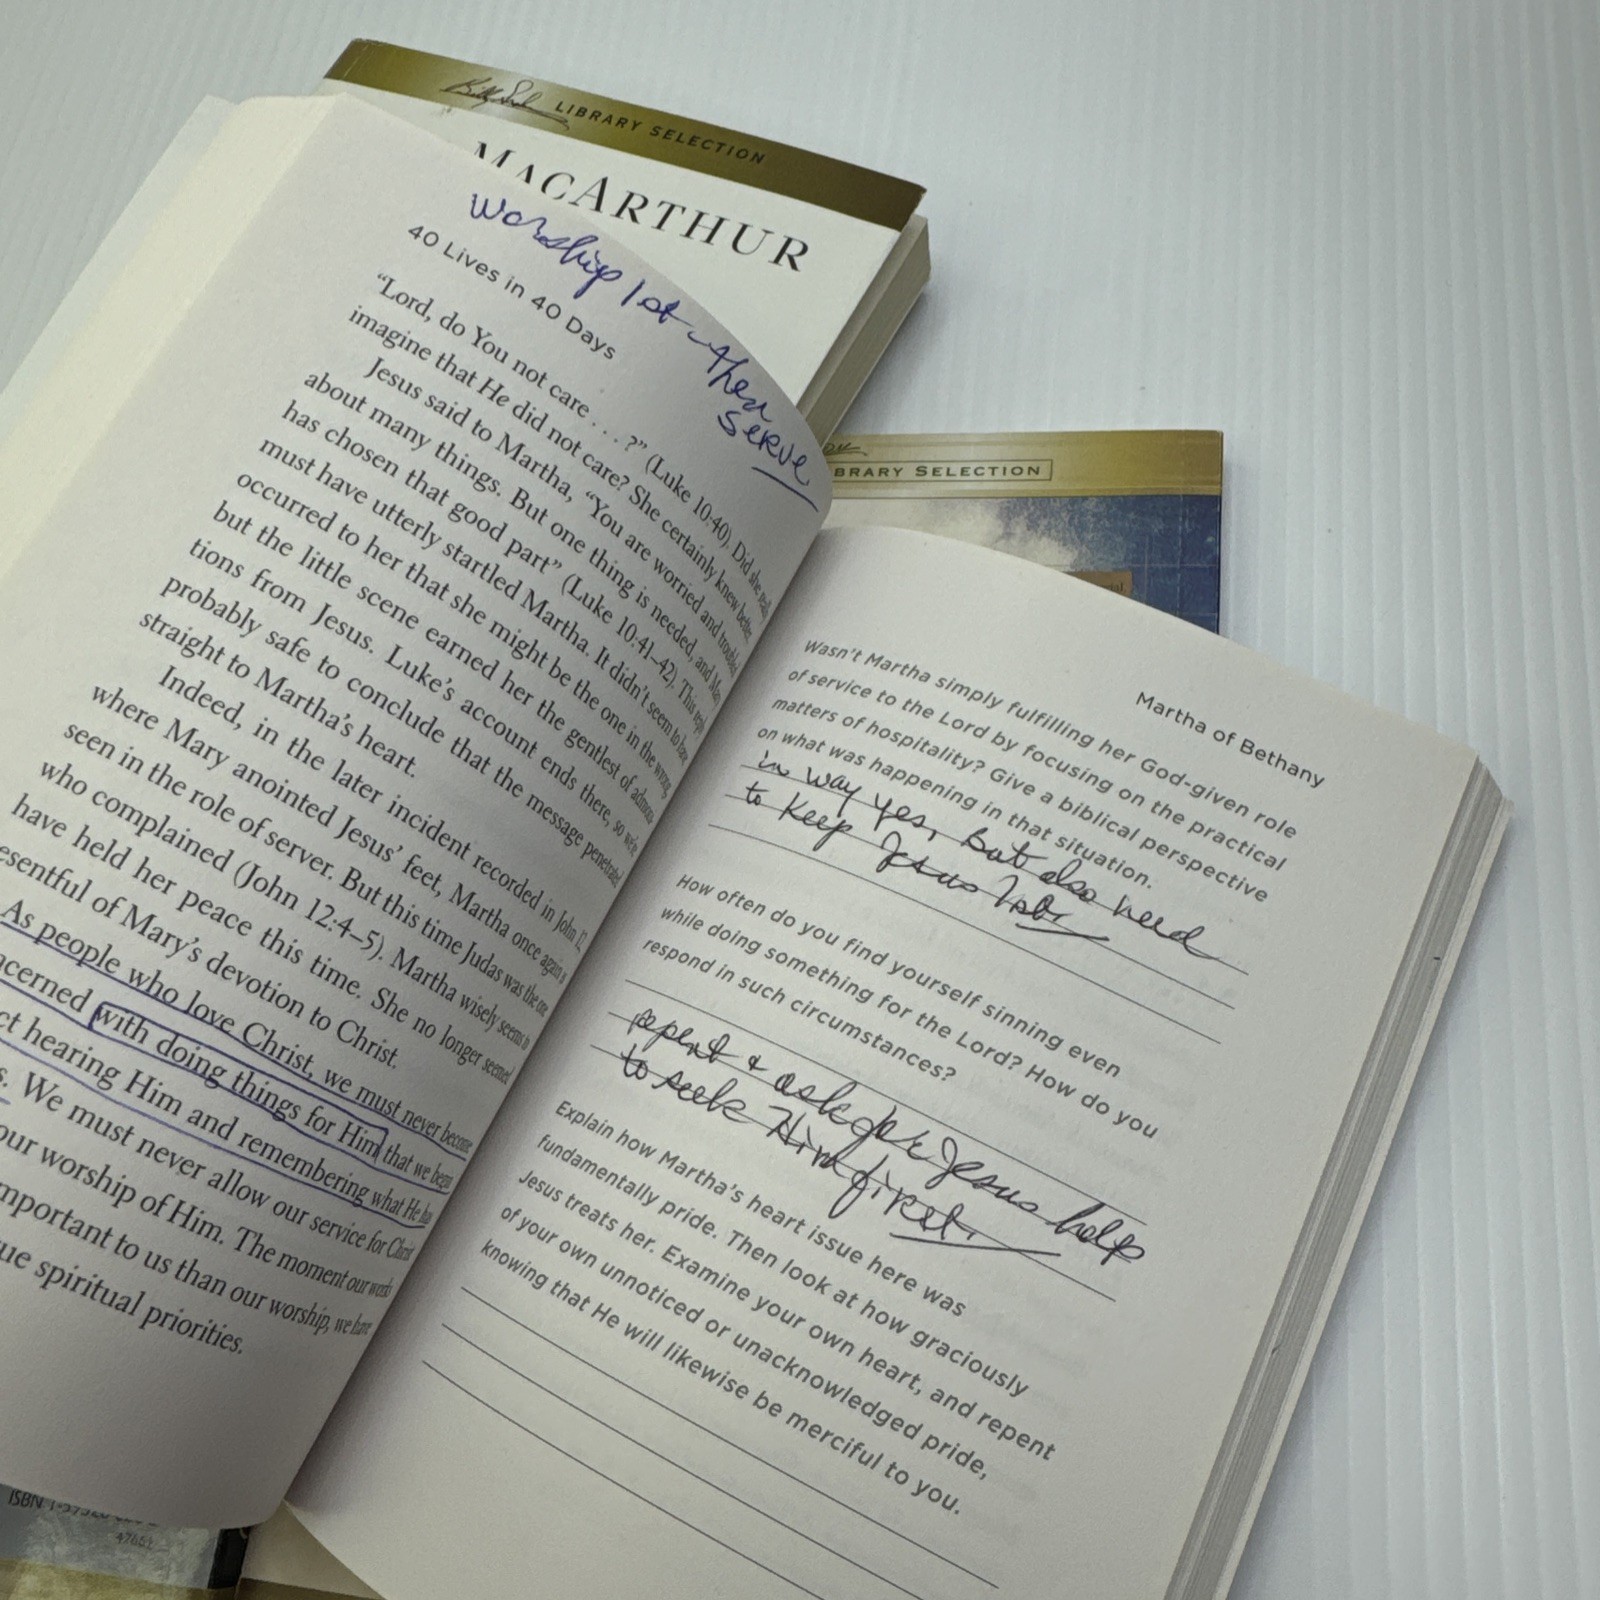 LIBRARY SELECTION
MACARTHUR
BRARY SELECTION
Worship 1st - then
serve
40 Lives in 40 Days
"Lord, do You not care . . . ?" (Luke 10:40). Did she really
imagine that He did not care? She certainly knew better.
Jesus said to Martha, "You are worried and troubled
about many things. But one thing is needed, and Mary
has chosen that good part" (Luke 10:41–42). This reply
must have utterly startled Martha. It didn't seem to have
occurred to her that she might be the one in the wrong,
but the little scene earned her the gentlest of admoni-
tions from Jesus. Luke's account ends there, so we're
probably safe to conclude that the message penetrated
straight to Martha's heart.
Indeed, in the later incident recorded in John 12,
where Mary anointed Jesus' feet, Martha once again is
seen in the role of server. But this time Judas was the one
who complained (John 12:4–5). Martha wisely seems to
have held her peace this time. She no longer seemed
esentful of Mary's devotion to Christ.
As people who love Christ, we must never become
ncerned with doing things for Him that we begin
ct hearing Him and remembering what He has
s. We must never allow our service for Christ
our worship of Him. The moment our works
mportant to us than our worship, we have
ue spiritual priorities.
Martha of Bethany
Wasn't Martha simply fulfilling her God-given role
of service to the Lord by focusing on the practical
matters of hospitality? Give a biblical perspective
on what was happening in that situation.
in way yes, but also need
to keep Jesus 1st.
How often do you find yourself sinning even
while doing something for the Lord? How do you
respond in such circumstances?
repent & ask for Jesus help
to seek Him first.
Explain how Martha's heart issue here was
fundamentally pride. Then look at how graciously
Jesus treats her. Examine your own heart, and repent
of your own unnoticed or unacknowledged pride,
knowing that He will likewise be merciful to you.
47661